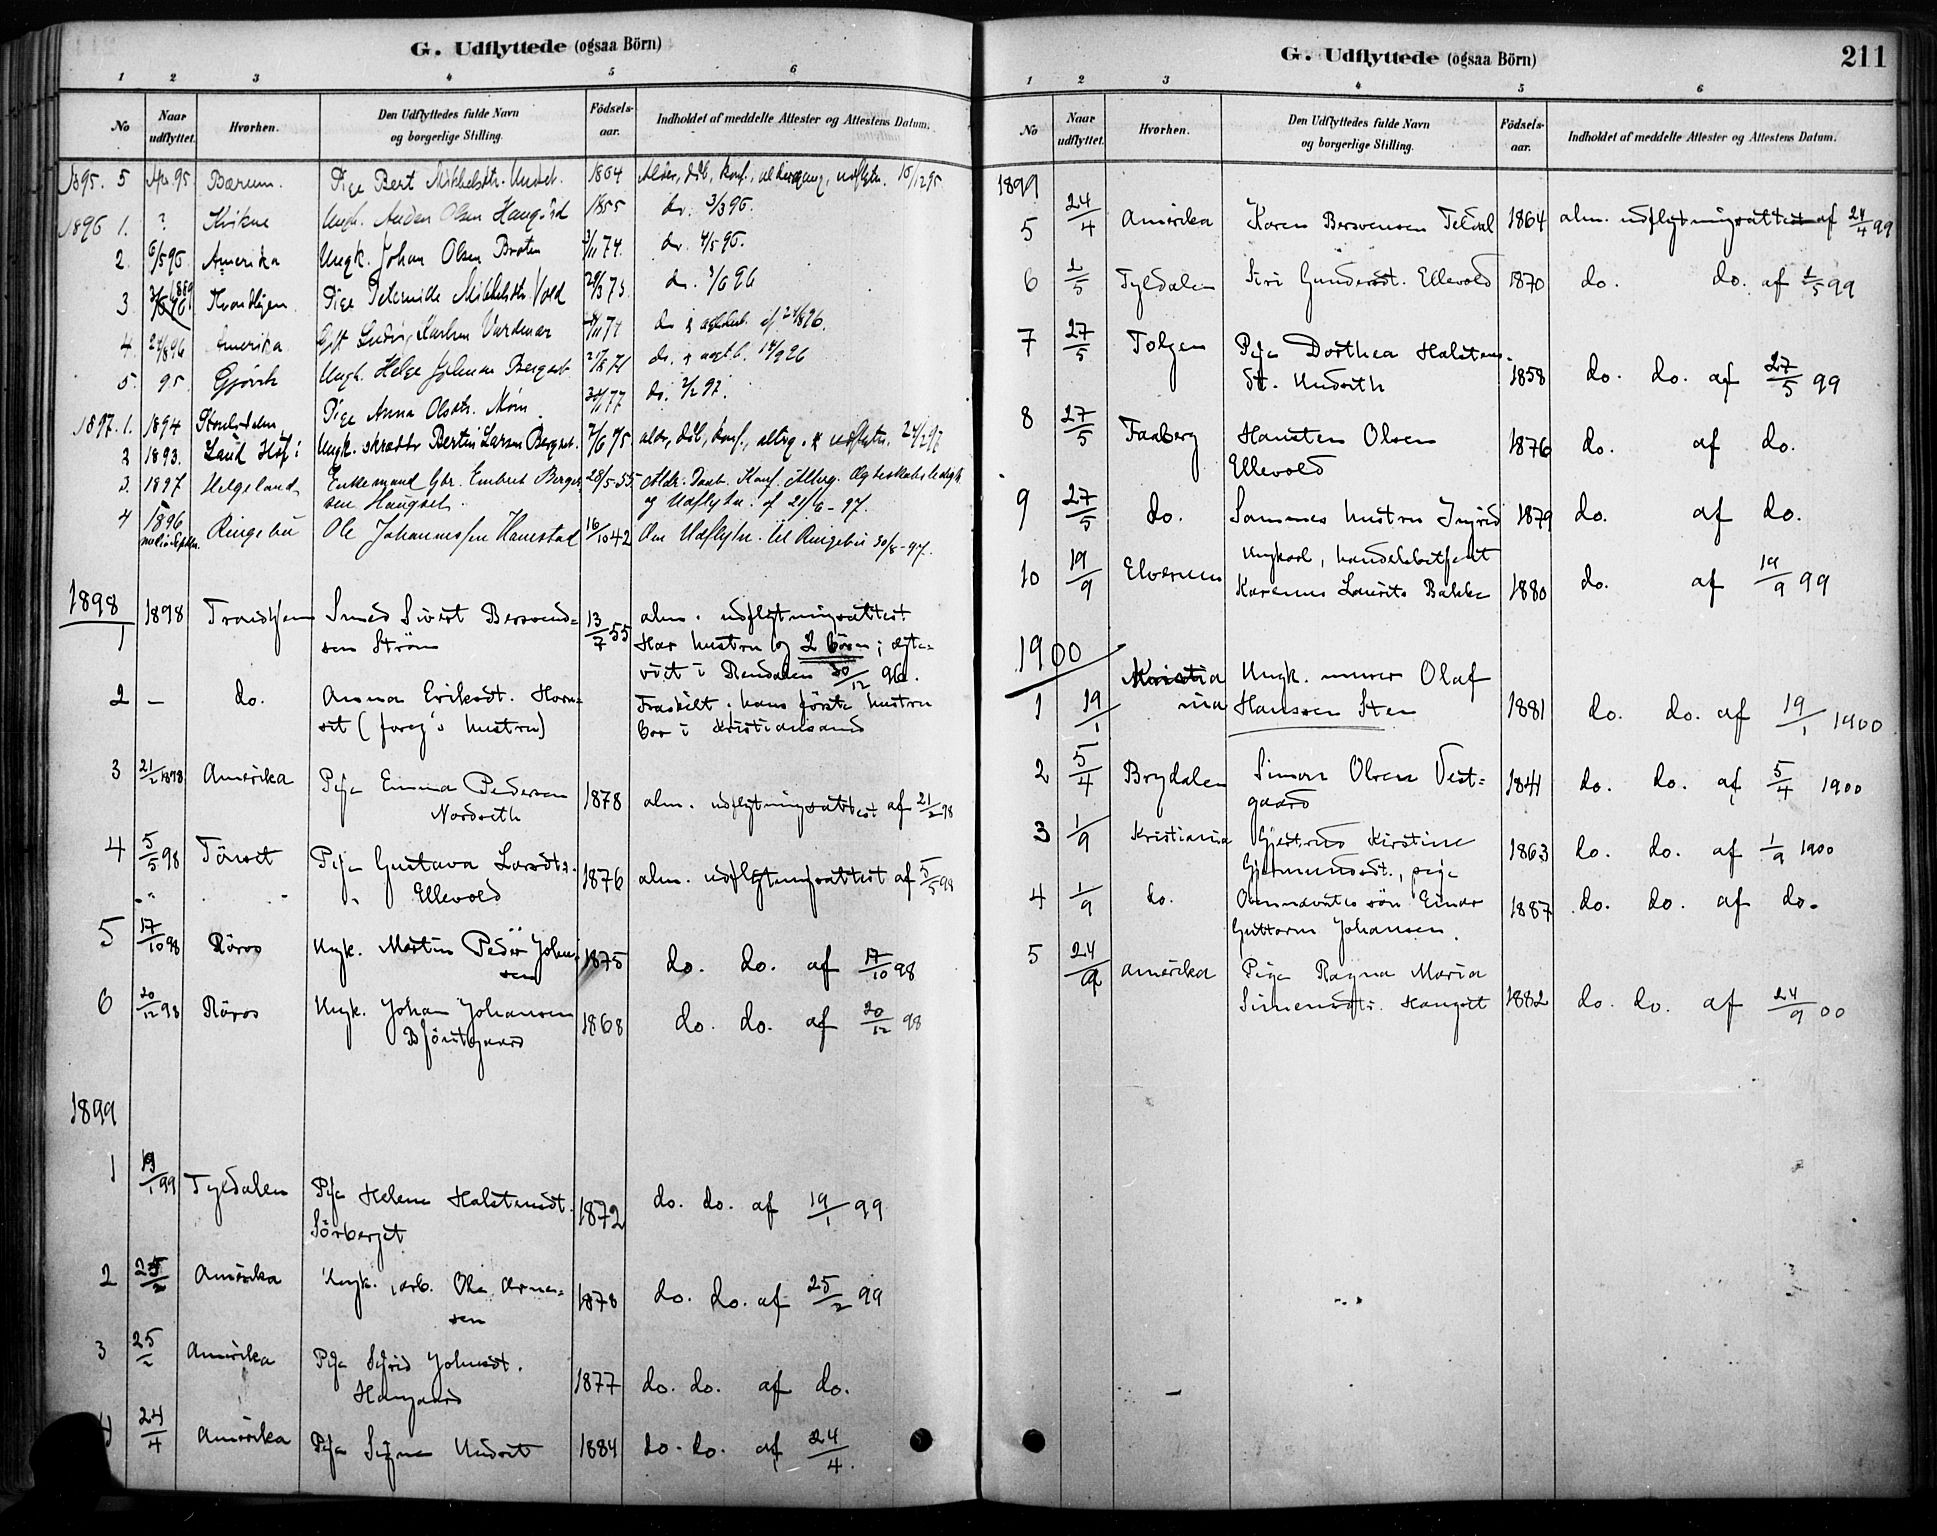 G. Udflyttede (ogsaa Börn)
1 2 3 4 5 6
No Naar udflyttet. Hvorhen. Den Udflyttedes fulde Navn og borgerlige Stilling. Födselsaar. Indholdet af meddelte Attester og Attestens Datum.
1895. 5 95 Bærum. Pige Bert Mikkelsdtr. 1864 Alder, dåb, konf., altergang, udflytn.
1896 1. ? Kvikne Ungk. Olsen 1855 do. 3/3 96.
2. 6/5 96 Amerika Ungk. Johan Olsen Braten 74. do. 4/5 96.
3 Trondhjem Pige Peternille Mikkelsdtr. Vold 73. do. 96
4. 24/8 96 Amerika Gift Karlsen do 24/8 96.
5. 95. Gjövik Ungk. Helge Bergset do.
1897. 1. 1894 Pige Anna Olsdtr. Moen 77 do. 2/2 97.
2 1893. Land Ungk. skrædder Bertin Larsen Bergset. 7/6 75 alder, dåb, konf., altrg. & udflytn. 24/2 97
3. 1897 Helgeland Enkemand Gbr. Embret Berger- 28/5-55 Aldr. Daab. Konf. Altrg. Ægteskabsledigh.
sen Haugset. og Udflytn. af 21/6-97.
4 1896 Ringebu Ole Johannessen Hanestad 16/10 42 Om Udflytn. til Ringebu 30/8-97.
1898
1 1898 Trondhjem Smed Sivert Bersvend- 13/7 55 alm. udflytningsattest
sen Ström Har hustru og 2 börn; ægte-
viet i Rendalen 30/12 96.
2 — do. Anna Eriksdt. Horn- Fraskilt. hans förste hustru
set (foreg's hustru) bor i Kristiansand
3 21/2 1898 Amerika Pige Emma Pedersen 1878 alm. udflytningsattest af 21/2 98
Nordseth
4 5/5 98 Tönset Pige Gustava Larsdtr. 1876 alm. udflytningsattest af 5/5 98
Ellevold
5 17/10 98 Röros Ungk. Martin Peder Johan- 1875 do. do. af 17/10 98
sen
6 20/12 98 Röros Ungk. Johan Johansen 1868 do. do. af 20/12 98
Bjöntegaard
1899
1 19/1 99 Tyldalen Pige Helene Halstensdt. 1872 do. do. af 19/1 99
Sörberget
2 25/2 Amerika Ungk., arb. Ole Arne- 1878 do. do. af 25/2 99
sen
3 25/2 Amerika Pige Sigrid Johnsdt. 1877 do. do. af do.
Haugaard
4 24/4 Amerika Pige Signe Undset 1884 do. do. af 24/4.
G. Udflyttede (ogsaa Börn) 211
1 2 3 4 5 6
No Naar udflyttet. Hvorhen. Den Udflyttedes fulde Navn og borgerlige Stilling. Födselsaar. Indholdet af meddelte Attester og Attestens Datum.
1899
5 24/4 Amerika Karen Bersvensen Teldal 1864 alm. udflytningsattest af 24/4 99
6 1/5 Tyldalen Siri Gundersdt. Ellevold 1870 do. do. af 1/5 99
7 27/5 Tolgen Pige Dorthea Halstens-
dt. Undseth 1858 do. do. af 27/5 99
8 27/5 Faaberg Hansten Olsen 1876 do. af do.
Ellevold
9 27/5 do. Sammes hustru Ingrid 1879 do. af do.
10 19/9 Elverum Ungkarl, handelsbetjent
Karenus Laurits Bakke 1880 do. af 19/9 99
1900
1 19/1 Kristiania Ungk. murer Olaf
Hanssen Sten 1881 do. do. af 19/1 1900
2 5/4 Brydalen Simon Olsen Vest- 1841 do. do. af 5/4 1900
gaard
3 1/9 Kristiania Gjertrud Kirstine 1863 do. do. af 1/9 1900
Gjermundsdt., pige
4 1/9 do. Ovennævntes sön Einar 1887 do. do. af do.
Guttorm Johansen.
5 24/9 Amerika Pige Ragna Maria
Simensdtr. Haugset 1882 do. do. af 24/9 00